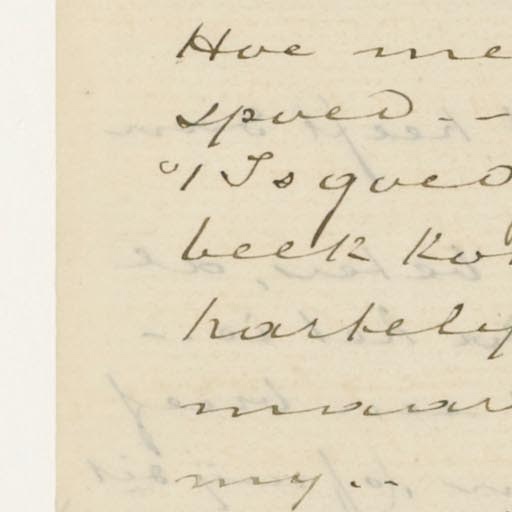 Hoe me
spoed - -
"'t Is goed
beek ko
hartely
maar
my. -